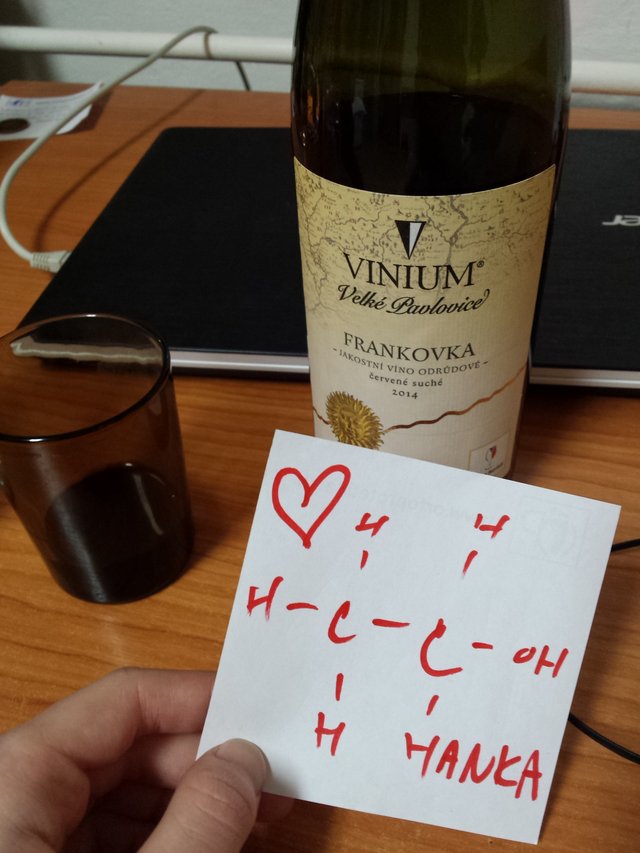 VINIUM®
Velké Pavlovice
FRANKOVKA
- JAKOSTNÍ VÍNO ODRŮDOVÉ -
červené suché
2014
H H
H - C - C - OH
H HANKA